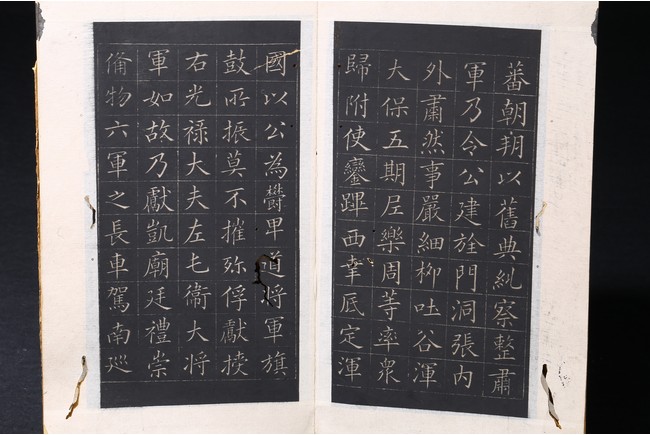 蕃朝翔以舊典糺察整肅
軍乃令公建旌門洞張內
外肅然事嚴細柳吐谷渾
大保五期㞐樂周等率衆
歸附使鑾蹕西幸底定渾
國以公為欝甲道將軍旗
鼓所振莫不摧殄俘獻捷
右光祿大夫左屯衛大將
軍如故乃獻凱廟廷禮崇
備物六軍之長車駕南巡